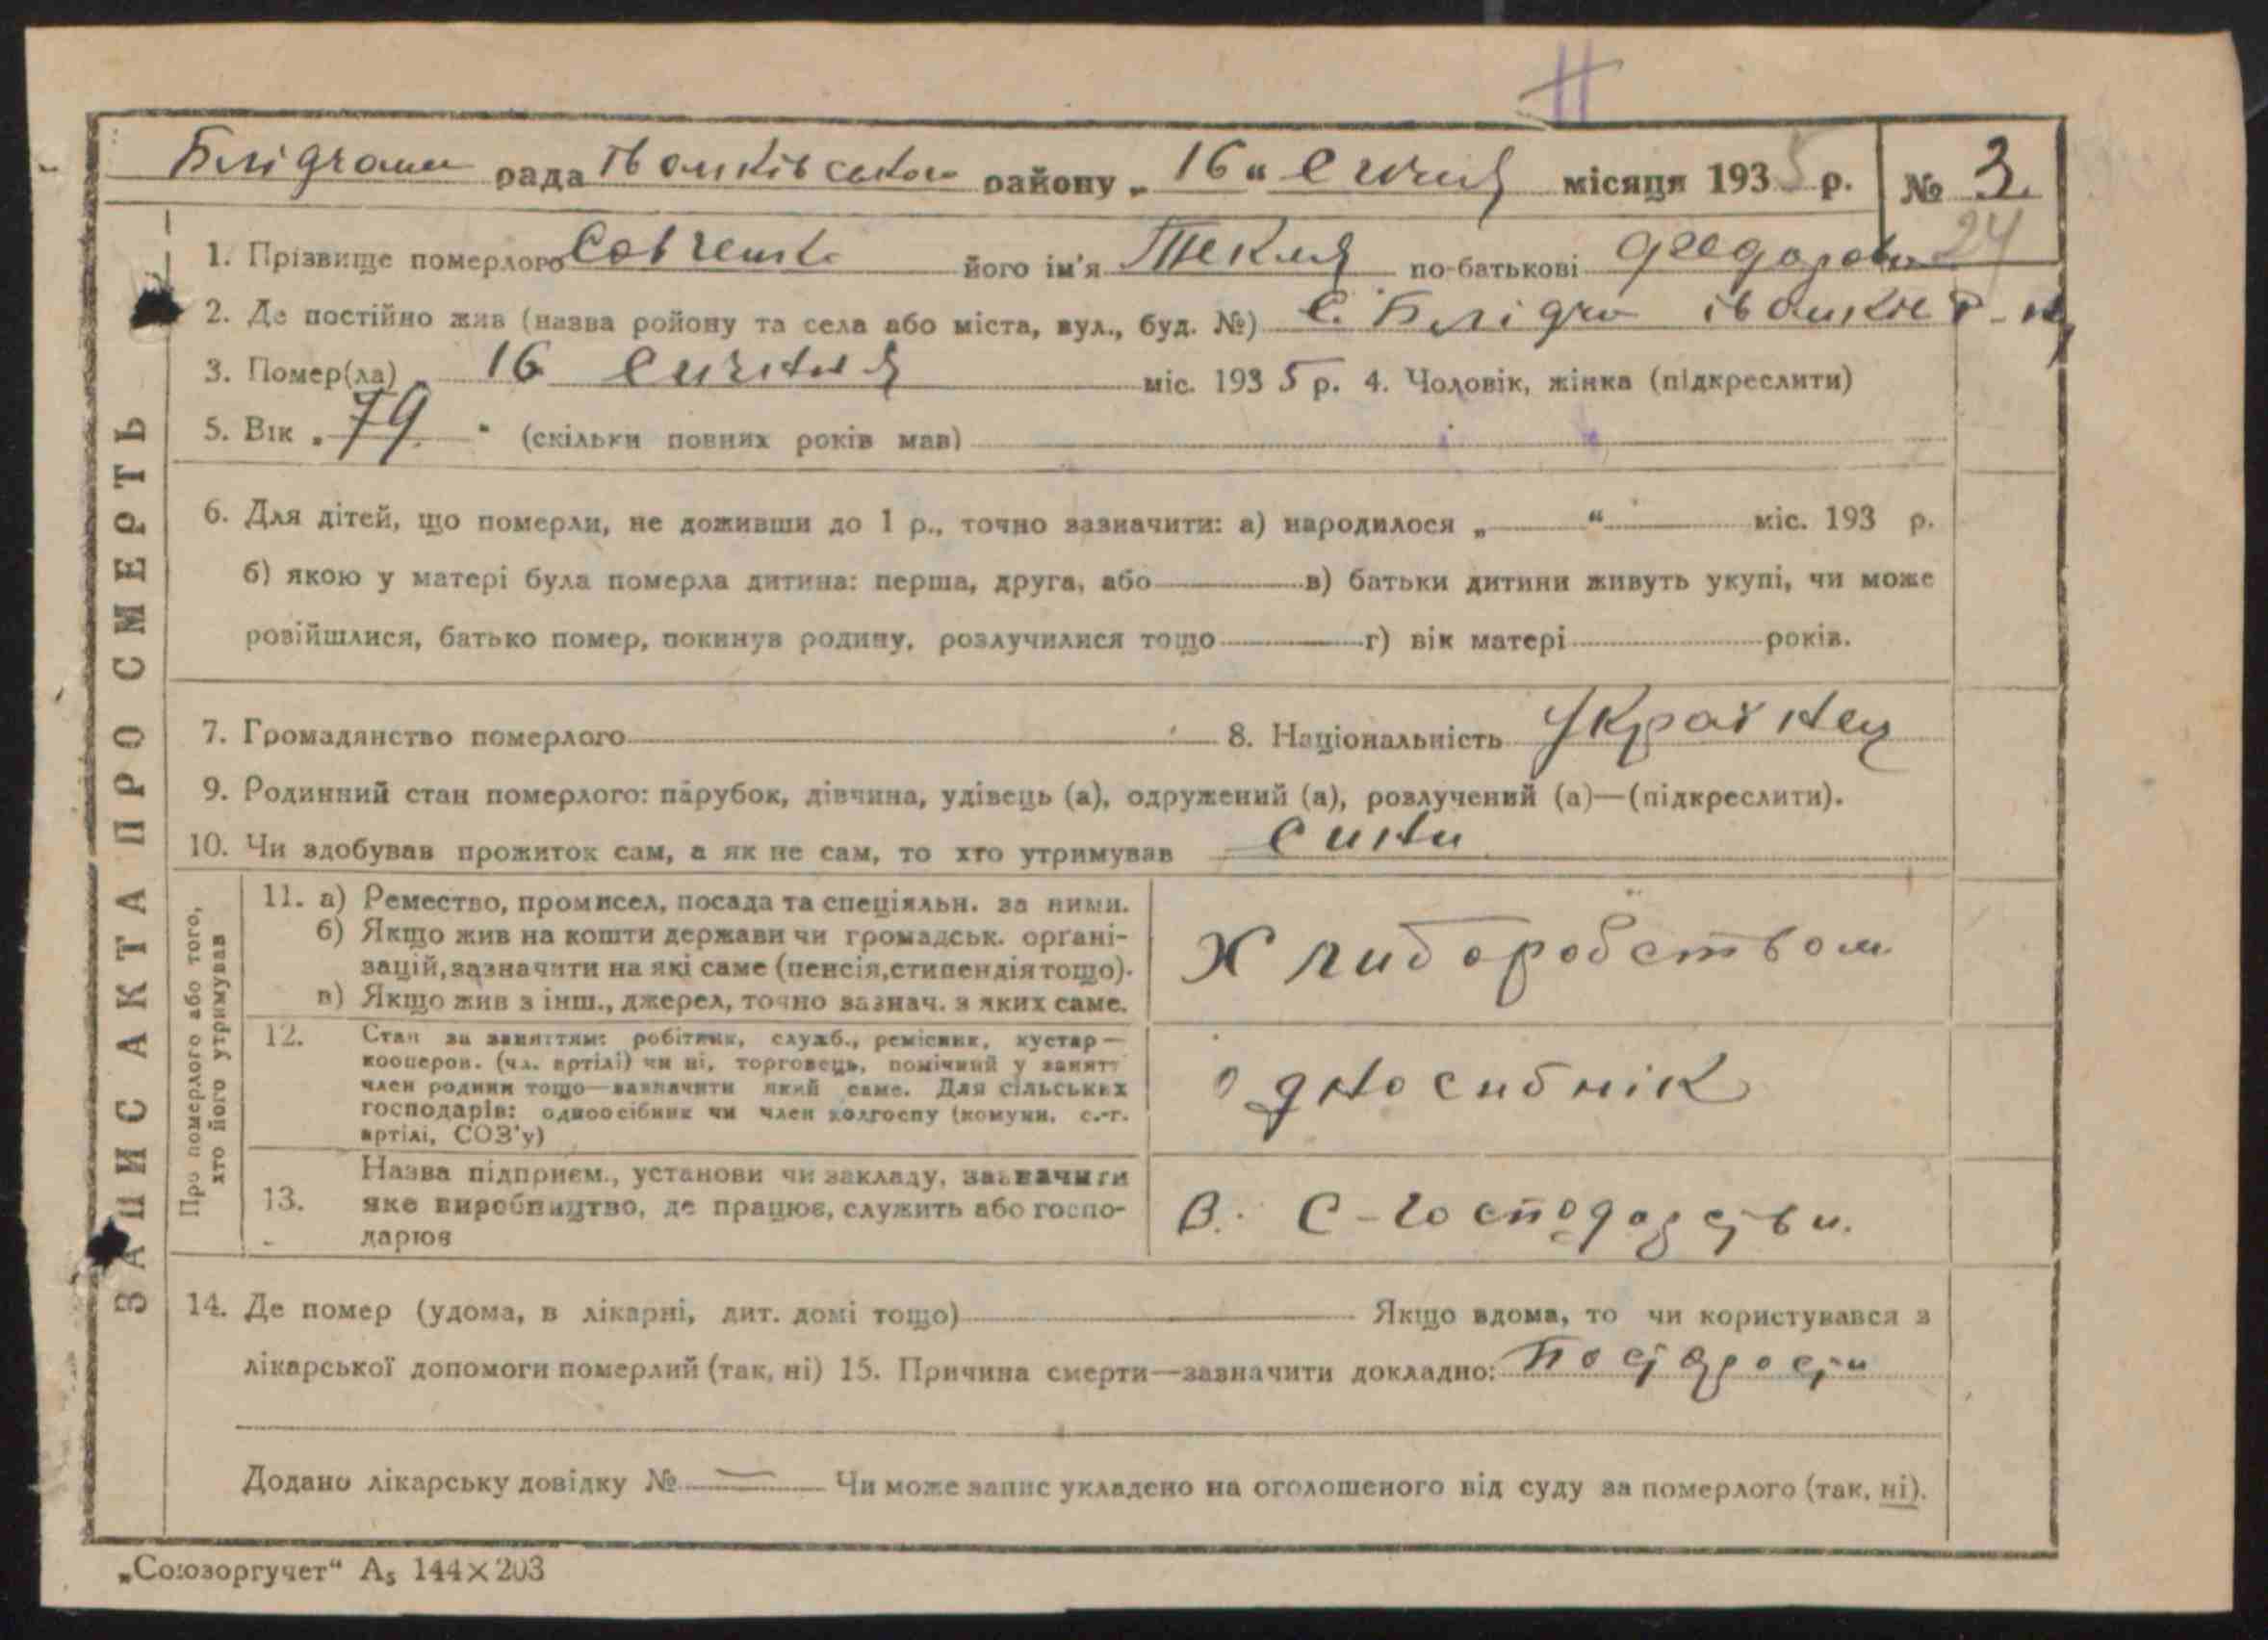 рада Іванківського району „ 16 “ січня місяця 1935 р. № 3.
24
1. Прізвище померлого Савченко його ім'я Текля по-батькові Федорова
2. Де постійно жив (назва ройону та села або міста, вул., буд. №) С. Блідча Іванків р-ну
3. Помер(ла) „ 16 сичня міс. 1935 р. 4. Чоловік, жінка (підкреслити)
5. Вік „ 79. “ (скільки повних років мав)
6. Для дітей, що померли, не доживши до 1 р., точно зазначити: а) народилося „ “ міс. 193 р.
б) якою у матері була померла дитина: перша, друга, або в) батьки дитини живуть укупі, чи може
розійшлися, батько помер, покинув родину, розлучилися тощо г) вік матері років.
7. Громадянство померлого 8. Національність Українец
9. Родинний стан померлого: парубок, дівчина, удівець (а), одружений (а), розлучений (а)—(підкреслити).
10. Чи здобував прожиток сам, а як не сам, то хто утримував сини
ЗАПИС АКТА ПРО СМЕРТЬ
Про померлого або того,
хто його утримував
11. а) Ремество, промисел, посада та спеціяльн. за ними.
б) Якщо жив на кошти держави чи громадськ. органі-
зацій, зазначити на які саме (пенсія, стипендія тощо).
в) Якщо жив з інш., джерел, точно зазнач. з яких саме.
Хлиборобством
12. Стан за заняттям: робітник, служб., ремісник, кустар—
кооперов. (чл. артілі) чи ні, торговець, помічний у занятт
член родини тощо—зазначити який саме. Для сільських
господарів: одноосібник чи член колгоспу (комуни, с.-г.
артілі, СОЗ'у)
односибнік
13. Назва підприєм., установи чи закладу, зазначити
яке виробництво, де працює, служить або госпо-
дарює
В. С-господарстви.
14. Де помер (удома, в лікарні, дит. домі тощо) Якщо вдома, то чи користувався з
лікарської допомоги померлий (так, ні) 15. Причина смерти—зазначити докладно: По старости
Додано лікарську довідку № — Чи може запис укладено на оголошеного від суду за померлого (так, ні).
„Союзоргучет“ А₅ 144×203